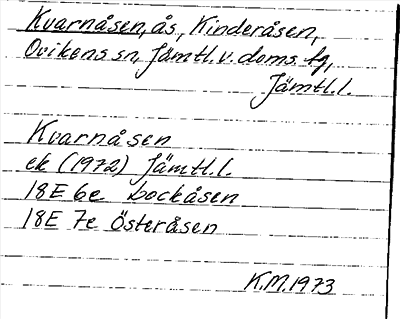 Kvarnåsen, ås, Kinderåsen,
Ovikens sn, Jämtl. v. doms. fg,
Jämtl.l.
Kvarnåsen
ek (1972) Jämtl.l.
18E 6e bockåsen
18E 7e Österåsen
K.M.1973